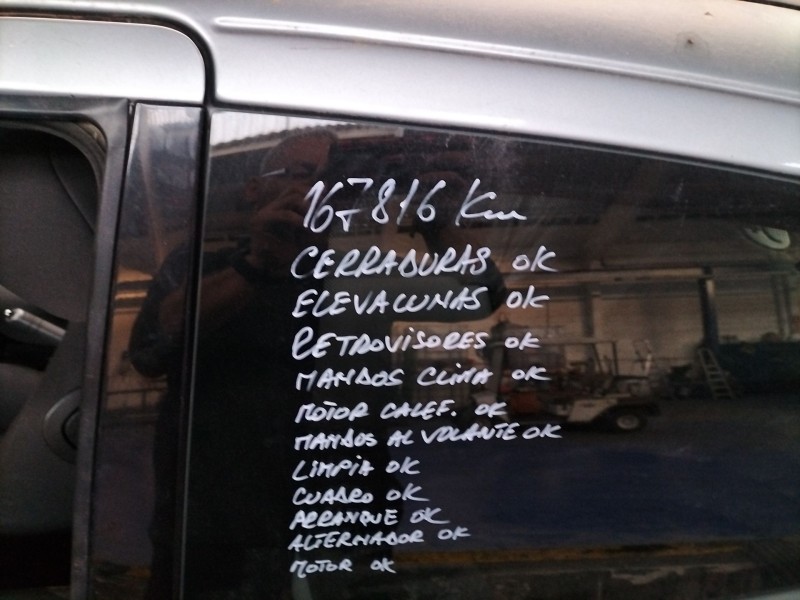 167816 Km
CERRADURAS OK
ELEVALUNAS OK
RETROVISORES OK
MANDOS CLIMA OK
MOTOR CALEF. OK
MANDOS AL VOLANTE OK
LIMPIA OK
CUADRO OK
ARRANQUE OK
ALTERNADOR OK
MOTOR OK